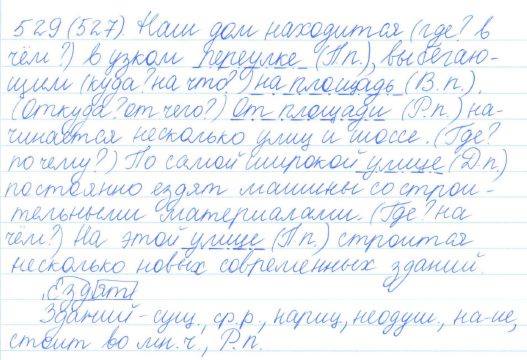 529(527). Наш дом находится (где? в
чём?) в узком переулке (П.п.), выбегаю-
щим (куда? на что?) на площадь (В.п.).
(Откуда? от чего?) От площади (Р.п.) на-
чинается несколько улиц и шоссе. (Где?
по чему?) По самой широкой улице (Д.п.)
постоянно ездят машины со строи-
тельными материалами. (Где? на
чём?) На этой улице (П.п.) строится
несколько новых современных зданий.
Ездят
Зданий - сущ., ср.р., нариц., неодуш., на -ие,
стоит во мн.ч., Р.п.